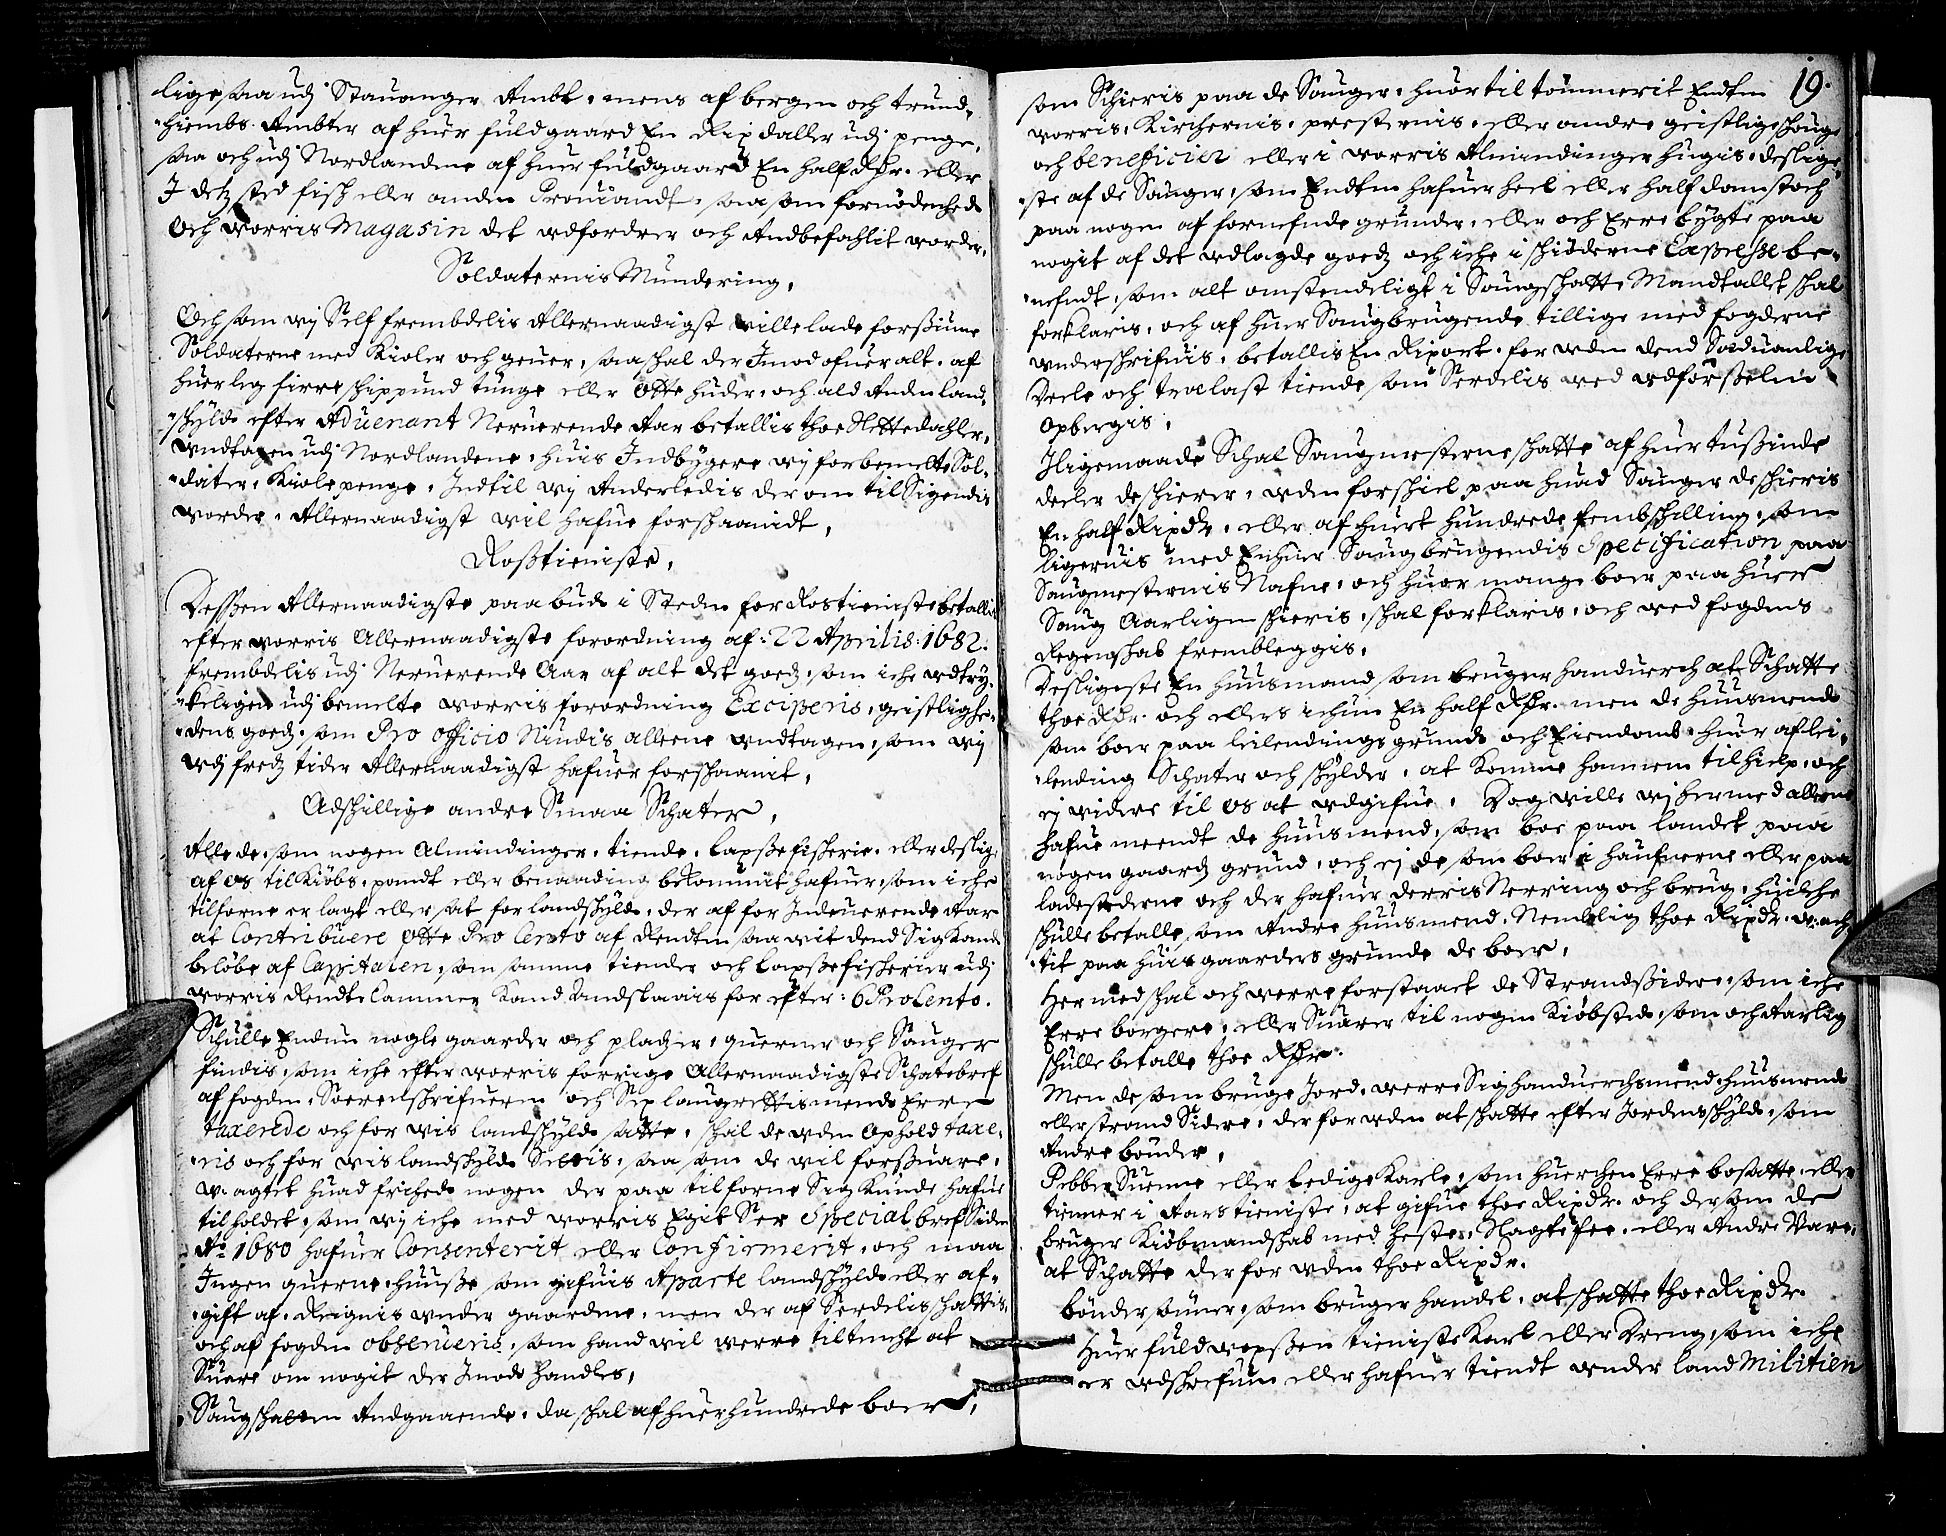 ligesaa udj Stauanger Ambt, mens af bergen och trund¬
hiembs Ambter af huer fuldgaard En Rixdaller udj penge,
saa och udj Nordlandene af huer fuldgaard En half Rdr. eller
J detz sted fisk eller anden Prouiandt, saa som fornødenhed
Och Worris Magasin det udfordrer och Andbefahlit worder,
Soldaternis Mundering,
Och som wij Self frembdelis Allernaadigst wille lade forsiune
Soldaterne med Kioler och geuer, saa skal der Jmod ofueralt af
huer leg firre skippund tunge eller Otte huder, och ald Anden land¬
skyld efter Aduenant Neruerende Aar betallis thoe Slettedahler,
Undtagen udj Nordlandene, huis Jndbygere wij forbemelte Sol¬
dater, Kiolepenge, Jndtil wij Anderledis der om tilSigendis
worder, Allernaadigst wil hafue forskaanidt,
Rostieniste,
Dessen Allernaadigste paabud i Steden for Rostieniste betallis
efter worris Allernaadigste forordning af: 22 Aprilis: 1682.
frembdelis udj Neruerende Aar af alt det goedz, som iche udtry¬
keligen udj bemelte worris forordning Exciperis, geistlighe¬
dens goedz, som Pro officio Niudis alleene undtagen, som wij
udj fredz tider Allernaadigst hafuer forskaanit,
Adskillige andre Smaa Skater,
Alle de, som nogen Almindinger, tiende, Laxsefiskerie, eller deslige
af os til Kiøbs, pandt eller benaading bekommit hafuer, som iche
tilforne er lagt eller sat for landskyld, der af for Jndeuerende Aar
at Contribuere Otte Pro Cento af Rendten saa wit dend Sig Kand
beløbe af Capitalen, som samme tiender och Laxsefiskerier udj
worris Rendte Cammer Kand Andslaais for efter: 6 Pro Cento.
Skulle Endnu nogle gaarder och pladzer, querner och Sauger
findis, som iche efter worris forrige Allernaadigste Skatebref
af fogden, Sorenskrifueren och Sex laugrettismend Erre
taxerede och for wis landskyld satte, skal de uden Ophold taxe¬
ris och for wis landskyld Settis, saa som de wil forsuare,
U-agtet huad frihed nogen der paa tilforne Sig Kunde hafue
tilholdet, som wij iche med worris Egit Ser Special bref Siden
Ao 1680 hafuer Consenterit eller Confirmerit, och maa
Jngen querne-huuse som gifuis Aparte landskyld eller af¬
gift af, Reignis under gaardene, men der af Serdelis skattis,
och af fogden obserueris, som hand wil werre tiltencht at
Suare om nogit der Jmod handles,
Saugskatten Andgaaende, da skal af huer hundrede boer,
19.
som Schieris paa de Sauger, huortil tømmerit Endten
worris, Kirchernis, presternis, eller andre geistlige schouge
och beneficier eller i worris Almindinger hugis, deslige¬
ste af de Sauger, som Endten hafuer heel eller half damstoch
paa nogen af fornefnde grunder, eller och Erre bygte paa
nogit af det udlagde goedz och iche i skiøderne Expresse be¬
nefndt, som alt omstendeligt i Saugskatte Mandtallet skal
forklaris, och af huer Saugbrugende tillige med fogderne
underskrifuis, betallis En Rixort, foruden dend Sæduanlige
Deele och tralast tiende, som Serdelis ved udførselen
Opbergis,
Jligemaade Schal Saugmesterne skatte af huer tusinde
deeler de skierer, uden forskiel paa huad Sauger de skieris
En half Rixdr. eller af huert hundrede fembskilling, som
ligeruis med Enhuer Saugbrugendis Specification, paa
Saugmesternis Nafne, och huor mange boer paa huer
Saug Aarligen skieris, skal forklaris, och ved fogdens
Regenskab frembleggis,
Desligeste En huusmand som bruger handuerch at Skatte
thoe Rdr. och ellers ichun En half Rdr. men de huusmend
som boer paa leilendings grund och Eiendomb, huor af lei¬
lending Skater och skylder, at Komme hannem til hielp, och
ej widere til os at udgifue, Dog wille wij hermed alleene
hafue meendt de huusmend, som boe paa landet paa
nogen gaardz grund, och ej de som boer i haufnerne eller paa
ladestederne och der hafuer derris Nerring och brug, huilche
skulle betalle, som Andre huusmend, Nemblig thoe Rixdr. u-ach
tit paa huis gaarders grunde de boer,
Hermed skal och werre forstaaet de Strandsidere, som iche
Erre borgere, eller Suarer til nogen Kiøbsted, som och Aarlig
skulle betalle thoe Rdr.
Men de som bruge Jord, werre Sig handuerchsmend, huusmend
eller strand Sidere, der foruden at skatte efter Jordens skyld, som
Andre bønder,
Pebber Suenne eller ledige Karle, som huerchen Erre bosatte, eller
tienner i Aars tieniste, at gifue thoe Rixdr. och dersom de
bruger Kiøbmandskab med heste, Slagtefee, eller Andre Vare,
at Skatte der foruden thoe Rixdr.
bønder sønner, som bruger handel, at skatte thoe Rixdr.
Huer fuldwoxsen tieniste Karl eller Dreng, som iche
er udskrefuen eller hafuer tiendt under land Militien